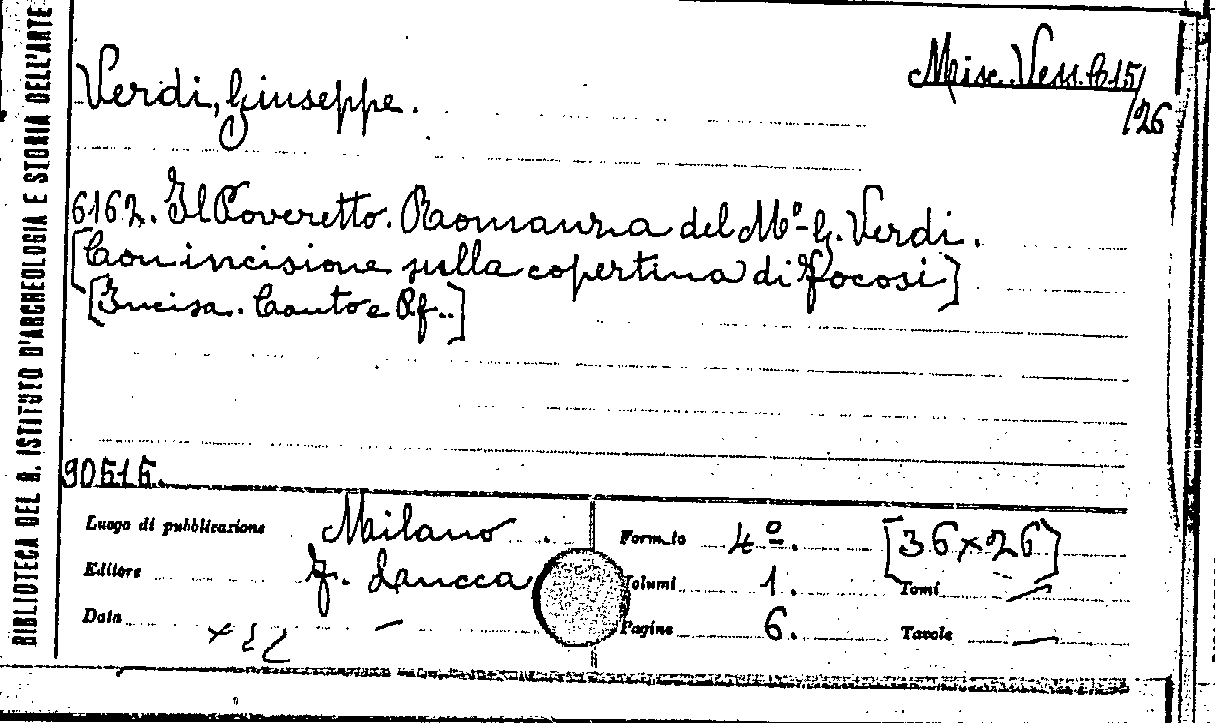 BIBLIOTECA DEL R. ISTITUTO D'ARCHEOLOGIA E STORIA DELL'ARTE
Misc. Vess. B 15/
/26
Verdi, Giuseppe.
6162. Il Poveretto. Romanza del M.º G. Verdi.
[Con incisione sulla copertina di Focosi]
[Incisa. Canto e Pf..]
90515.
Luogo di pubblicazione Milano.
Editore F. Lucca
Data —
Formato 4º. [36×26]
Volumi 1. Tomi —
Pagine 6. Tavole —